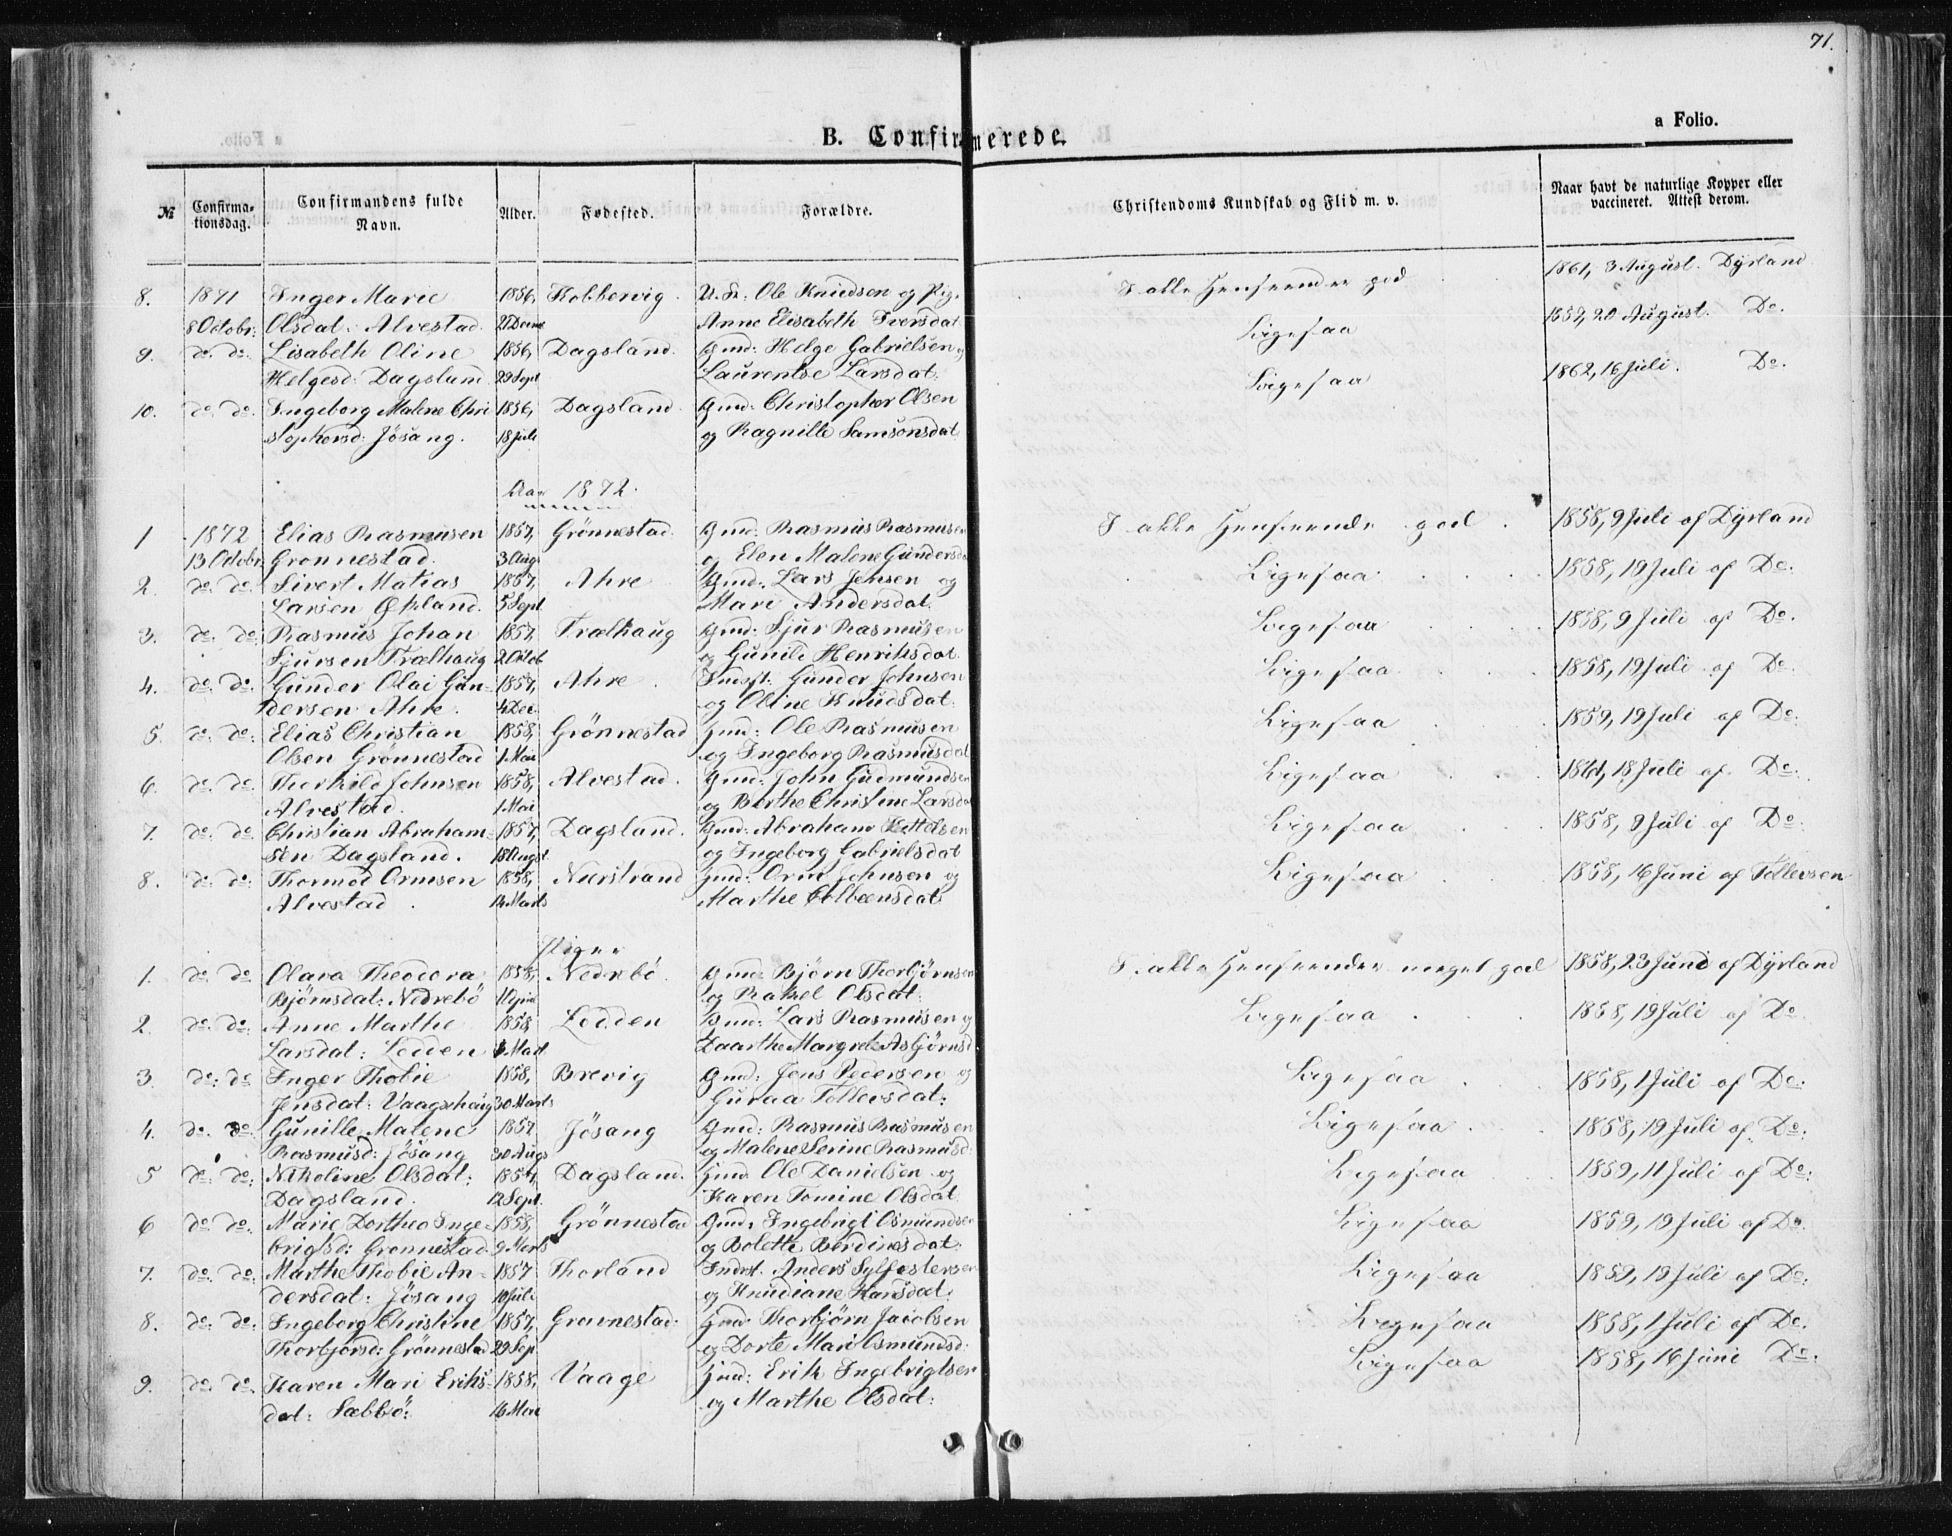 71.
a Folio.
B. Confirmerede.
№ Confirma- Confirmandens fulde Alder. Fødested. Forældre. Christendoms Kundskab og Flid m. v. Naar havt de naturlige Kopper eller
tionsdag. Navn. vaccineret. Attest derom.
8. 1871 Inger Marie 1856, Kobbervig. Ole Knudsen og Pig. I alle Henseender god 1861, 3 August. Dyrland
8 Octobr: Olsdat: Alvestad. Anne Elisabeth Iversdat
9. do. do. Lisabeth Oline 1856, Dagsland. Gmd: Helge Gabrielsen og Ligesaa 1859, 20 August. Do.
Helgesd: Dagsland 29 Sept Laurentse Larsdat:
10. do. do. Ingeborg Malene Chri 1856, Dagsland. Gmd: Christopher Olsen Ligesaa 1862, 16 Juli. Do.
stophersd: Jøsang. 18 Juli og Ragnille Samsonsdat
Aar 1872.
1 1872 Elias Rasmusen 1857, Grønnestad. Gmd: Rasmus Rasmusen I alle Henseende god. 1858, 9 Juli af Dyrland
13 Octobr Grønnestad. 3 Aug og Elen Malene Gundersda
2. do: do: Sivert Matias 1857, Ahre Gmd: Lars Jensen og Ligesaa 1858, 19 Juli af Do.
Larsen Økland. 5 Sept. Mari Andersdat.
3. do: do: Rasmus Johan 1857, Trælhaug Gmd: Sjur Rasmusen Ligesaa 1858, 9 Juli af Do.
Sjursen Trælhaug 2 Octob og Gunild Henriksdat.
4. do: do: Gunder Olai Gun- 1857, Ahre. Indst. Gunder Johnsen Ligesaa 1858, 19 Juli af Do.
dersen Ahre. 4 Dec. og Oline Knudsdat.
5. do: do: Elias Christian 1858, Grønnestad Gmd: Ole Rasmusen Ligesaa 1859, 19 Juli af Do:
Olsen Grønnestad 1 Mai og Ingeborg Rasmusdat
6. do: do: Thorkild Johnsen 1858, Alvestad. Gmd: John Gudmundsen Ligesaa 1861, 18 Juli af Do:
Alvestad. 1 Mai og Berthe Christine Larsda
7. do: do: Christian Abraham- 1857, Dagsland. Gmd: Abraham Kittelsen Ligesaa 1858, 9 Juli af Do:
sen Dagsland. 18 Augst. og Ingeborg Gabrielsdat
8. do: do: Thormod Ormsen 1858, Nærstrand Gmd: Orm Johnsen og Ligesaa 1858, 16 Juni af Tollevsen
Alvestad. 14 Marts Marthe Colbeensdat
Piger
1. do: do: Olava Theodora 1858, Nedrebø. Gmd: Bjørn Thorbjørnsen I alle Henseender meget god 1858, 23 Juni af Dyrland
Bjørnsdat: Nedrebø og Rakel Olsdat:
2. do: do: Anne Marthe 1858 Lodden Gmd: Lars Rasmusen og Ligesaa 1858, 19 Juli af Do.
Larsdat: Lodden Mart Daarthe Margrete Asbjørnsd
3. do: do Inger Thobie 1858, Brevig Gmd: Jens Pedersen og Ligesaa 1858, 1 Juli af Do:
Jensdat: Vaagshaug 30 Marts Guraa Tollevsdat:
4. do: do: Gunille Malene 1857 Jøsang Gmd: Rasmus Rasmusen Ligesaa 1858, 19 Juli af Do:
Rasmusd: Jøsang 30 Augs og Malene Serine Rasmusd:
5 do: do: Nikoline Olsdat: 1857, Dagsland. Gmd Ole Danielsen og Ligesaa 1859, 11 Juli af Do:
Dagsland. 12 Sept. Karen Tomine Olsdat
6 do: do: Marie Dorthea Inge- 1858, Grønnestad Gmd: Ingebrigt Osmundsen Ligesaa 1859, 19 Juli af Do
brigtsd: Grønnestad. 9 Marts og Bolette Berdinesdat:
7. do: do: Marthe Thobie An- 1857 Thorland Indst. Anders Sylfestersen Ligesaa 1859, 19 Juli af Do:
dersdat: Jøsang 10 Juli og Knudiane Hansdat:
8. do: do: Ingeborg Christine 1857, Grønnestad. Gmd: Thorbjørn Jacobsen Ligesaa 1858, 1 Juli af Do.
Thorbjørsd: Grønnestad 29 Sep. og Dorte Mari Osmundsd:
9. do: do. Karen Mari Eriks- 1858, Vaage Gmd: Erik Ingebrigtsen Ligesaa 1858, 16 Juni Do:
dat: Sæbbø: og Marthe Olsdat: